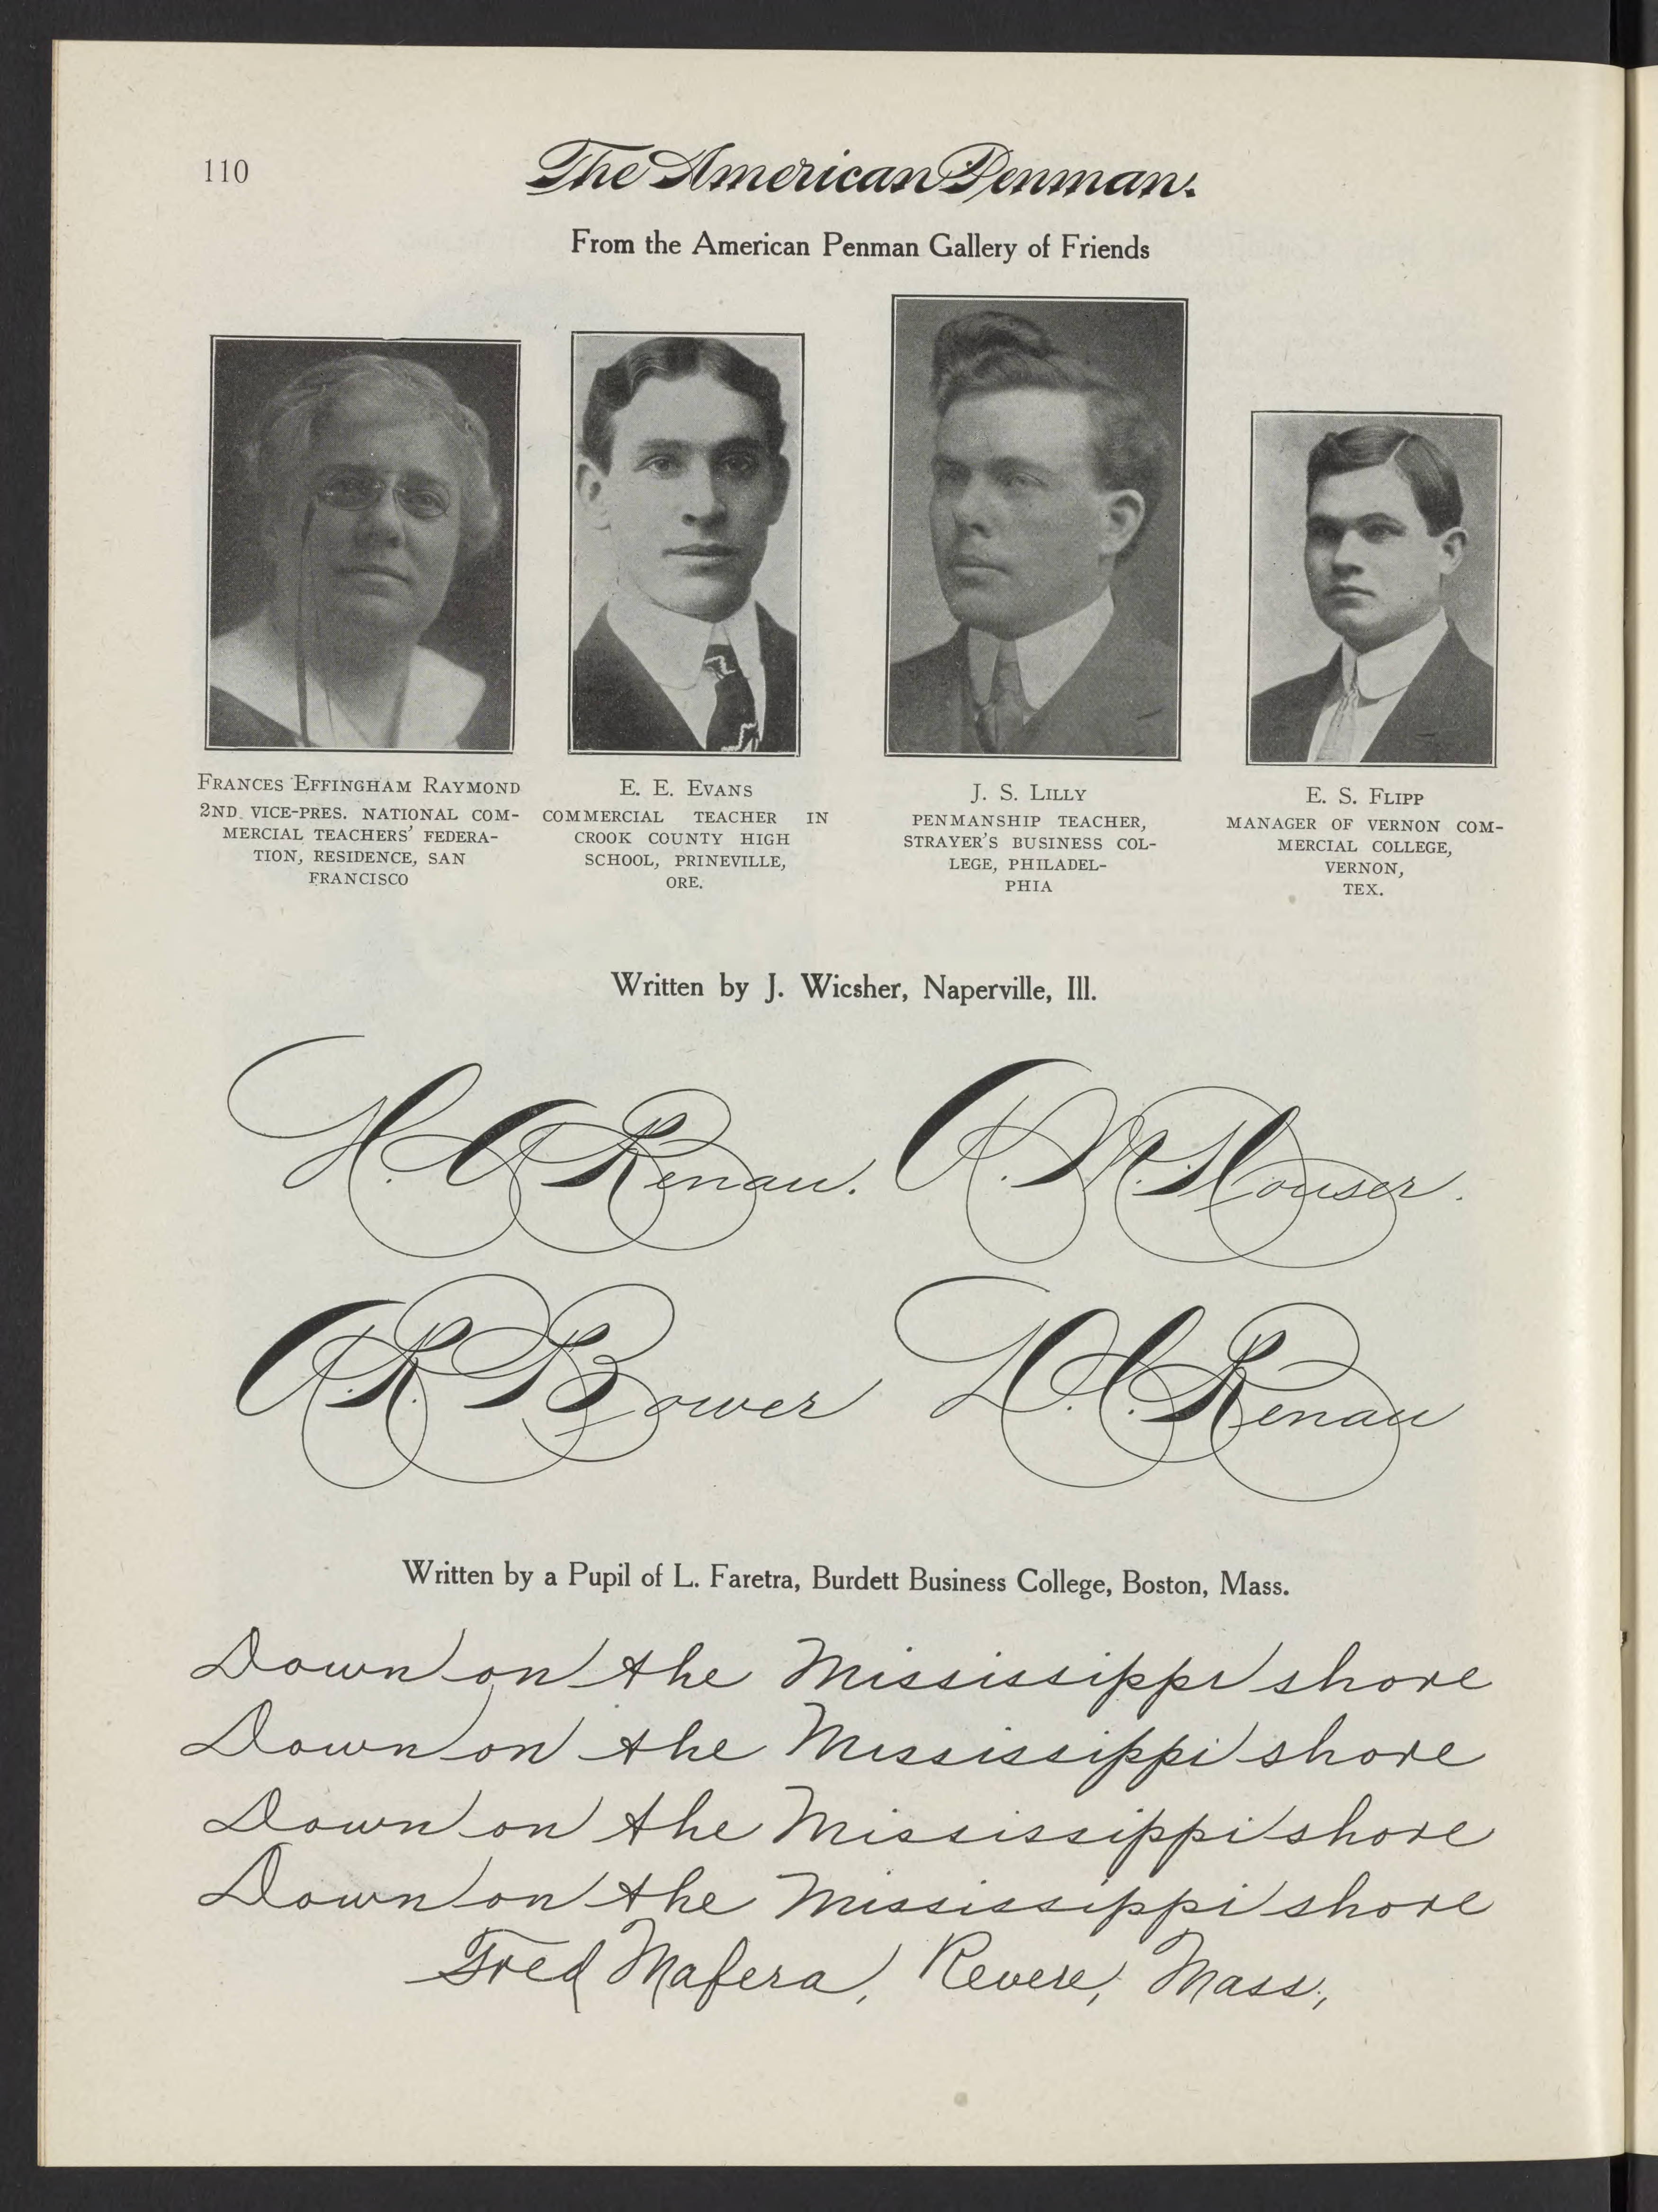 110
The American Penman.
From the American Penman Gallery of Friends
FRANCES EFFINGHAM RAYMOND
2ND VICE-PRES. NATIONAL COM-
MERCIAL TEACHERS' FEDERA-
TION, RESIDENCE, SAN
FRANCISCO
E. E. EVANS
COMMERCIAL TEACHER IN
CROOK COUNTY HIGH
SCHOOL, PRINEVILLE,
ORE.
J. S. LILLY
PENMANSHIP TEACHER,
STRAYER'S BUSINESS COL-
LEGE, PHILADEL-
PHIA
E. S. FLIPP
MANAGER OF VERNON COM-
MERCIAL COLLEGE,
VERNON,
TEX.
Written by J. Wicsher, Naperville, Ill.
H. A. Renau.
A. M. Houser.
A. R. Bower
D. H. Renau
Written by a Pupil of L. Faretra, Burdett Business College, Boston, Mass.
Down on the Mississippi shore
Down on the Mississippi shore
Down on the Mississippi shore
Down on the Mississippi shore
Fred Mafera, Revere, Mass,